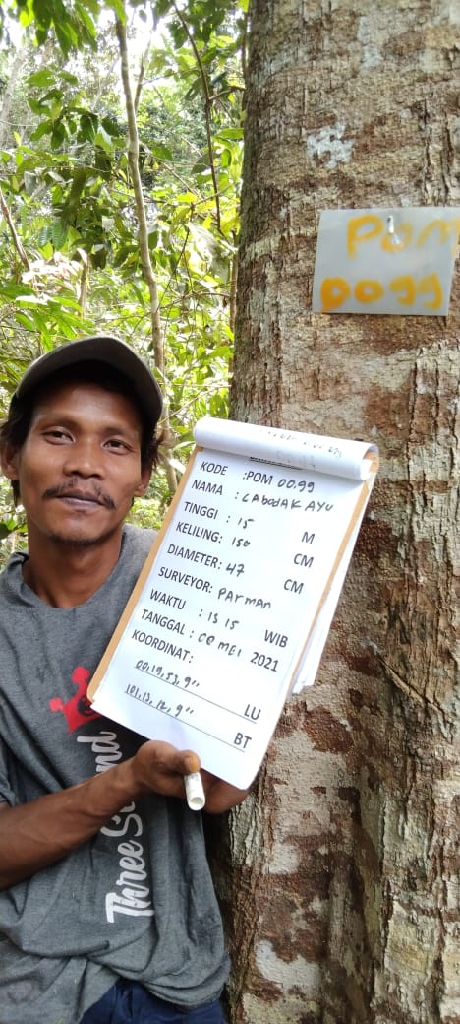 POM
0099
KODE :POM 00.99
NAMA : CABODAK AYU
TINGGI : 15 M
KELILING: 150 CM
DIAMETER: 47 CM
SURVEYOR: PAYMAN
WAKTU : 15 15 WIB
TANGGAL : 08 MEI 2021
KOORDINAT:
00,19,53,9" LU
101,13,12,9" BT
Three Second